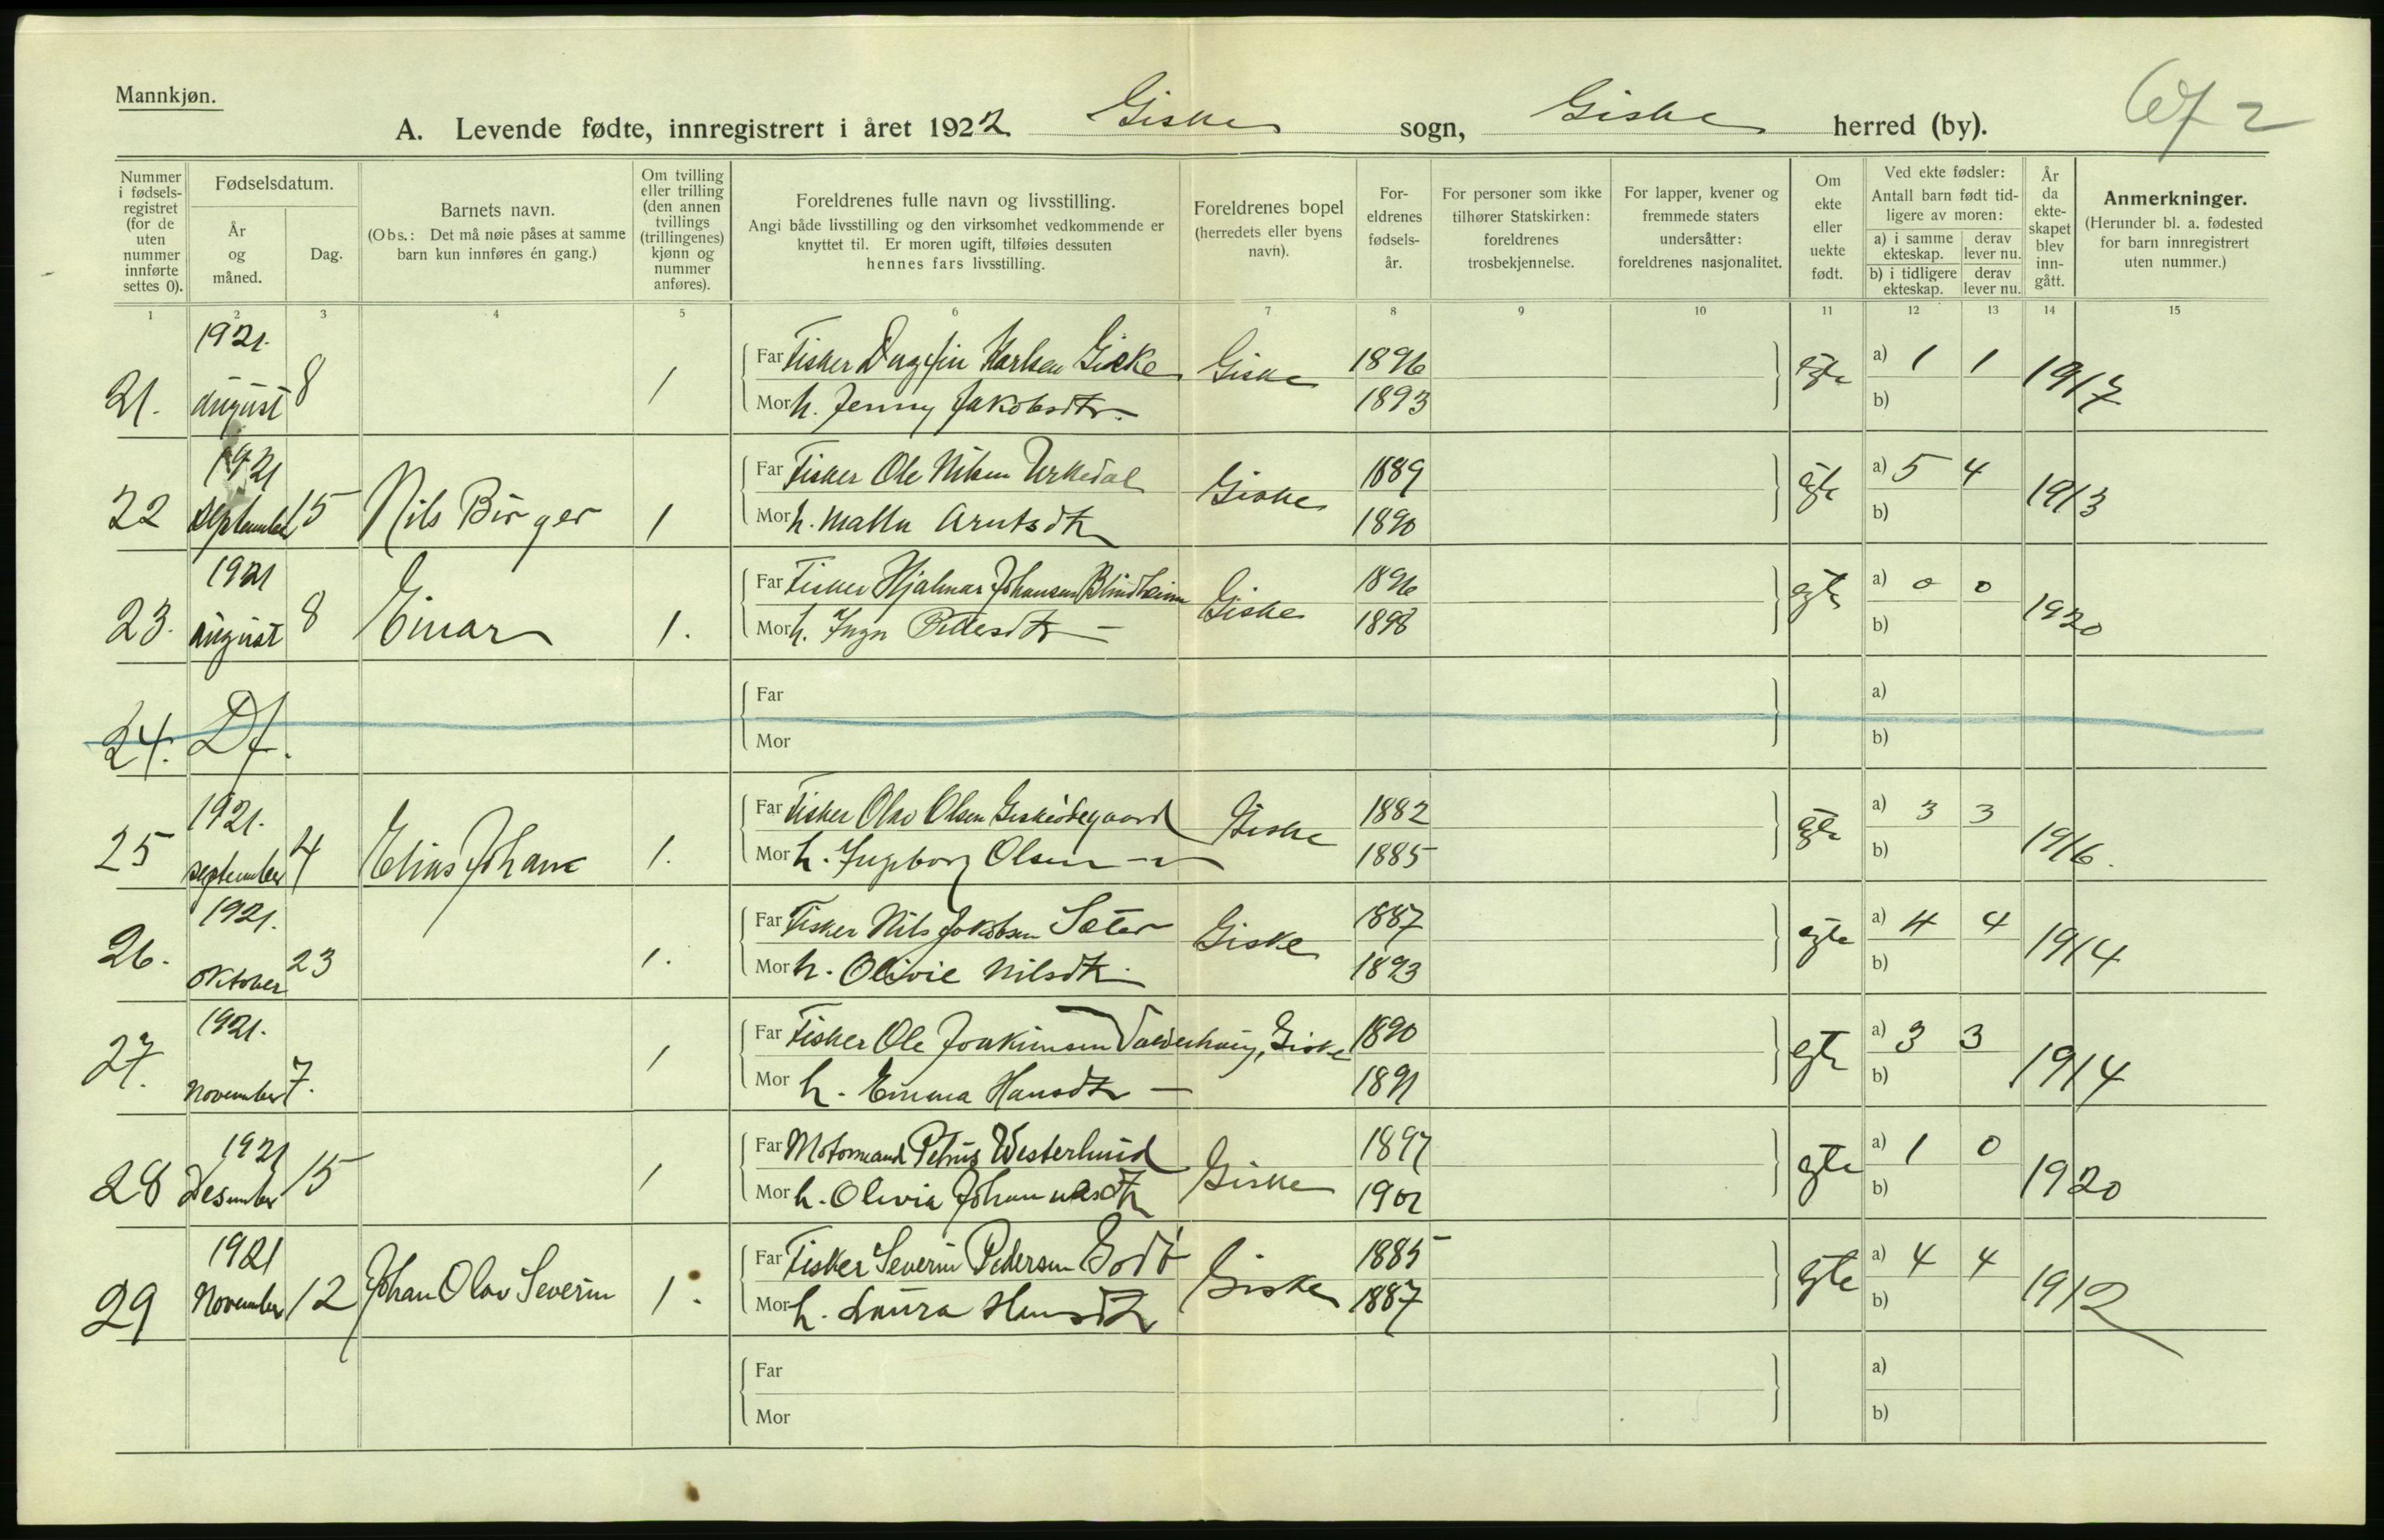 Mannkjøn.
67 2
A. Levende fødte, innregistrert i året 1922 Giske sogn, Giske herred (by).
Nummer i fødsels-registret (for de uten nummer innførte settes 0).
Fødselsdatum.
År og måned.
Dag.
Barnets navn.
(Obs.: Det må nøie påses at samme barn kun innføres én gang.)
Om tvilling eller trilling (den annen tvillings (trillingenes) kjønn og nummer anføres).
Foreldrenes fulle navn og livsstilling.
Angi både livsstilling og den virksomhet vedkommende er knyttet til. Er moren ugift, tilføies dessuten hennes fars livsstilling.
Foreldrenes bopel (herredets eller byens navn).
For-eldrenes fødsels-år.
For personer som ikke tilhører Statskirken: foreldrenes trosbekjennelse.
For lapper, kvener og fremmede staters undersåtter: foreldrenes nasjonalitet.
Om ekte eller uekte født.
Ved ekte fødsler: Antall barn født tid-ligere av moren:
a) i samme ekteskap. derav lever nu.
b) i tidligere ekteskap. derav lever nu.
År da ekte-skapet blev inn-gått.
Anmerkninger.
(Herunder bl. a. fødested for barn innregistrert uten nummer.)
1 2 3 4 5 6 7 8 9 10 11 12 13 14 15
21. 1921. august 8 1 Far Fisker Dagfin Karlsen Giske Giske 1896 egte a) 1 1 1917
Mor h. Jenny Jakobsdtr. 1893 b)
22 1921 september 15 Nils Birger 1 Far Fisker Ole Nilsen Urkedal Giske 1889 egte a) 5 4 1913
Mor h. Matha Arntsdtr 1890 b)
23. 1921 august 8 Einar 1. Far Fisker Hjalmar Johansen Blindheim Giske 1896 egte a) 0 0 1920
Mor h. Inga Petersdtr — 1898 b)
24. Df. Far a)
Mor b)
25 1921. september 4 Elias Johan 1. Far Fisker Olav Olsen Giskeødegaard Giske 1882 egte a) 3 3 1916.
Mor h. Ingeborg Olsen 1885 b)
26. 1921. Oktober 23 1. Far Fisker Nils Jakobsen Sæter Giske 1887 egte a) 4 4 1914
Mor h. Olivie Nilsdtr. 1893 b)
27. 1921. November 7. 1 Far Fisker Ole Joakimsen Valderhaug, Giske 1890 egte a) 3 3 1914
Mor h. Emma Hansdtr — 1891 b)
28 1921 Desember 15 1 Far Motormand Petrus Westerlund Giske 1897 egte a) 1 0 1920
Mor h. Olivia Johannesdtr 1901 b)
29 1921 November 12 Johan Olav Severin 1. Far Fisker Severin Pedersen Godø Giske 1885 egte a) 4 4 1912
Mor h. Laura Hansdtr 1887 b)
Far a)
Mor b)